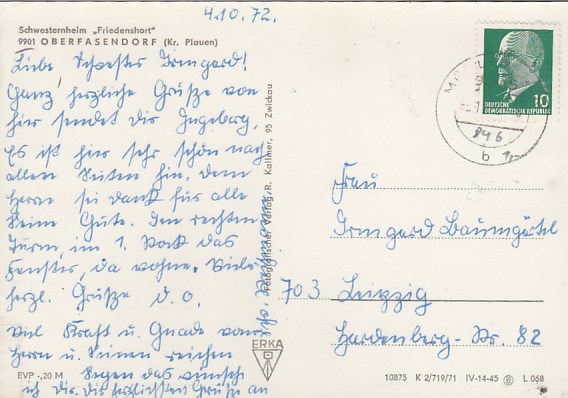 4.10.72.
Schwesternheim „Friedenshort"
9901 OBERFASENDORF (Kr. Plauen)
Liebe Schwester Irmgard!
Ganz herzliche Grüße von
hier sendet dir Ingeborg.
Es ist hier sehr schön nach
allen Seiten hin, dem
Herrn sei dank für alle
Seine Güte. Im rechten
Turm, im 1. Stock das
Fenster, da wohne. Viele
herzl. Grüße d. o.
Viel Kraft u. Gnade vom
Herrn u. Seinen reichen
Segen das wünsch
ich Dir. Die herzlichsten Grüße an
Fotografischer Verlag R. Kallmer, 95 Zwickau
ERKA
EVP -,20 M
10
DEUTSCHE
DEMOKRATISCHE REPUBLIK
b
Frau
Irmgard Baumgärtel
703 Leipzig
Hardenberg-Str. 82
10875 K 2/719/71 IV-14-45 L 068